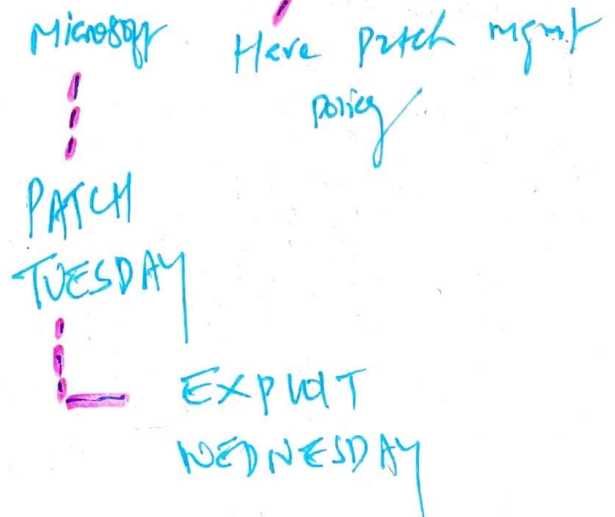 Microsoft
Have patch mgmt
policy
PATCH
TUESDAY
EXPLOIT
WEDNESDAY